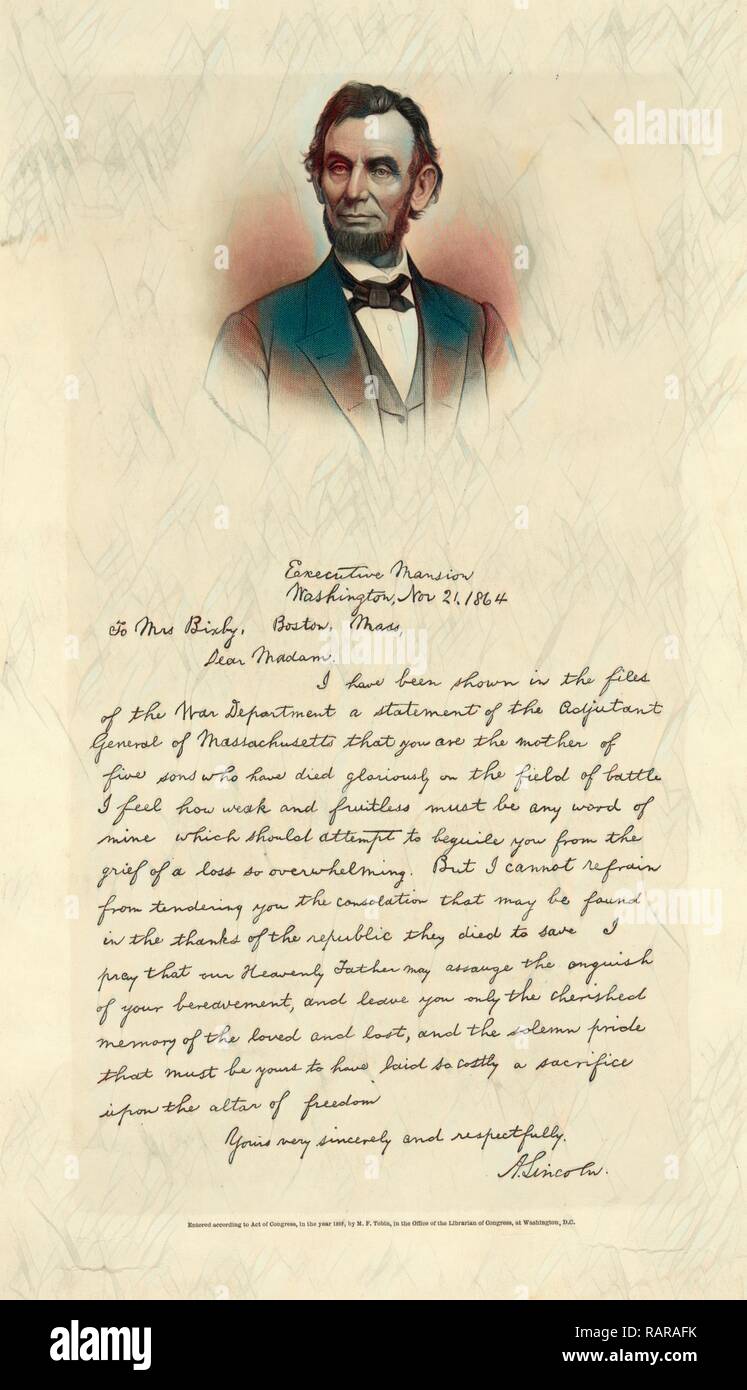 alamy
Executive Mansion
Washington, Nov 21, 1864
To Mrs Bixby, Boston, Mass,
Dear Madam.
I have been shown in the files
of the War Department a statement of the Adjutant
General of Massachusetts that you are the mother of
five sons who have died gloriously on the field of battle
I feel how weak and fruitless must be any word of
mine which should attempt to beguile you from the
grief of a loss so overwhelming. But I cannot refrain
from tendering you the consolation that may be found
in the thanks of the republic they died to save I
pray that our Heavenly Father may assauge the anguish
of your bereavement, and leave you only the cherished
memory of the loved and lost, and the solemn pride
that must be yours to have laid so costly a sacrifice
upon the altar of freedom
Yours very sincerely and respectfully.
A. Lincoln.
Entered according to Act of Congress, in the year by M. F. Tobin, in the Office of the Librarian of Congress, at Washington, D.C.
alamy
Image ID: RARAFK
www.alamy.com